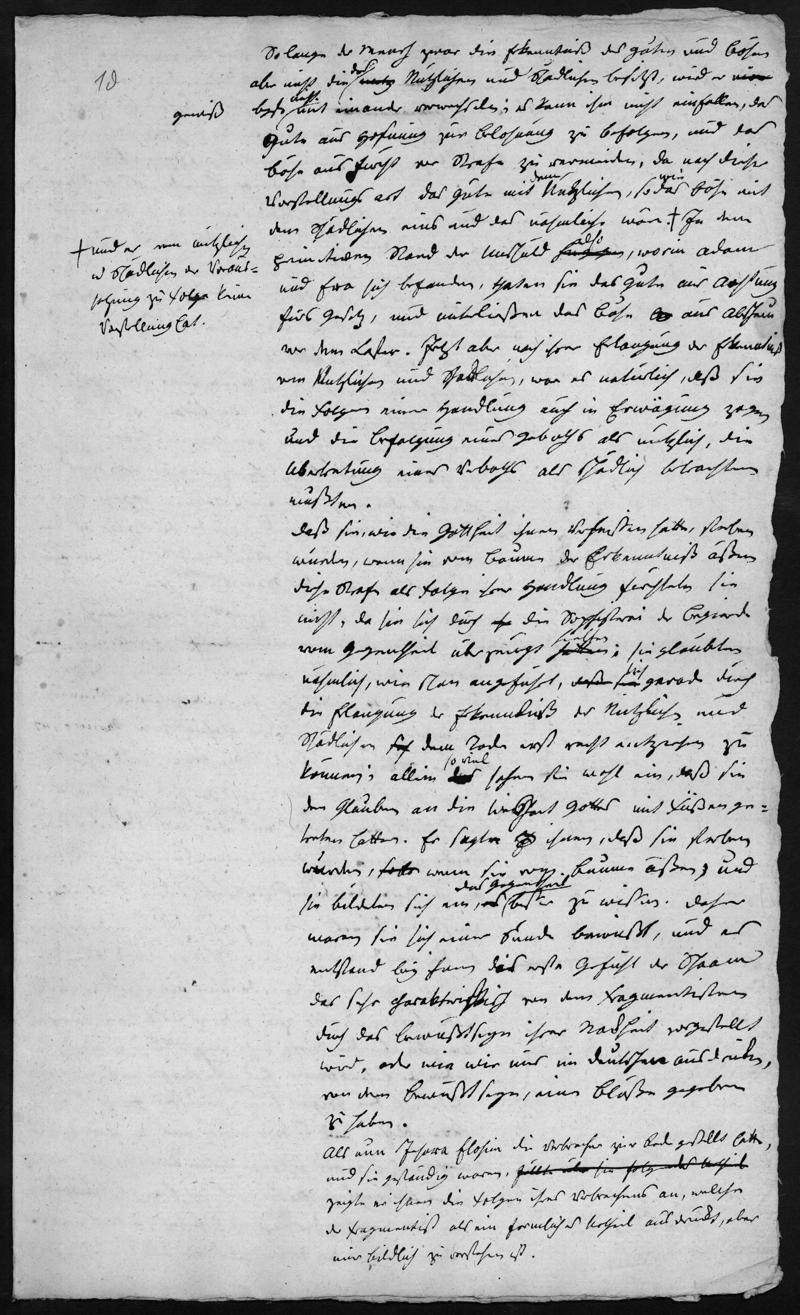 10
So lange der Mensch zwar die Erkenntniß des guten und bösen
aber nicht die des Nützlichen und Schädlichen besitzt, wird er
gewiß beide nicht mit einander verwechseln; es kann ihm nicht einfallen, das
Gute aus Hofnung zur Belohnung zu befolgen, und das
böse aus Furcht vor Strafe zu vermeiden, da nach dieser
Vorstellungs art das gute mit dem Nützlichen, so wie das böse mit
dem Schädlichen eins und das nähmliche wäre ☨ In dem
☨ und er vom nützlichen
u Schädlichen der Voraus-
setzung zu Folge keine
Vorstellung hat.
primitiven Stand der Unschuld also, worin Adam
und Ewa sich befanden, thaten sie das Gute aus Achtung
fürs Gesetz, und unterließen das böse aus Abscheu
vor dem Laster. Jetzt aber nach ihrer Erlangung der Erkenntniß
vom Nützlichen und Schädlichen, war es natürlich, daß sie
die Folgen einer Handlung auch in Erwägung zogen
und die Befolgung eines Geboths als nützlich, die
Übertretung eines Verboths als schädlich betrachten
mußten.
Daß sie, wie die Gottheit ihnen verheißen hatte, sterben
würden, wenn sie vom Baume der Erkenntniß äßen
diese Strafe als Folge ihrer Handlung fürchteten sie
nicht, da sie sich durch die Sophisterei der Begierde
vom Gegentheil überzeugt hatten; sie glaubten
nähmlich, wie schon angeführt, gerade durch
die Erlangung der Erkenntniß des Nützlichen und
Schädlichen dem Tode erst recht entziehen zu
können; allein so viel sahen sie wohl ein, daß sie
den Glauben an die Weisheit Gottes mit Füßen ge-
treten hatten. Er sagte ihnen, daß sie sterben
würden, wenn sie vom Baume äßen; und
sie bildeten sich ein, das Gegentheil besser zu wissen. Daher
waren sie sich einer Sünde bewußt, und es
entstand bey ihnen das erste Gefühl der Schaam
das sehr charakteristisch von dem Fragmentisten
durch das Bewußtseyn ihrer Nacktheit vorgestellt
wird, oder wie wir uns im deutschen ausdrüken,
von dem Bewußtseyn, eine Blöße gegeben
zu haben.
Als nun Jehova Elohim die Verbrecher zur Rede gestellt hatte,
und sie geständig waren,
zeigte er ihnen die Folgen ihres Verbrechens an, welches
der Fragmentist als ein förmliches Urtheil ausdrückt, aber
nur bildlich zu verstehen ist.